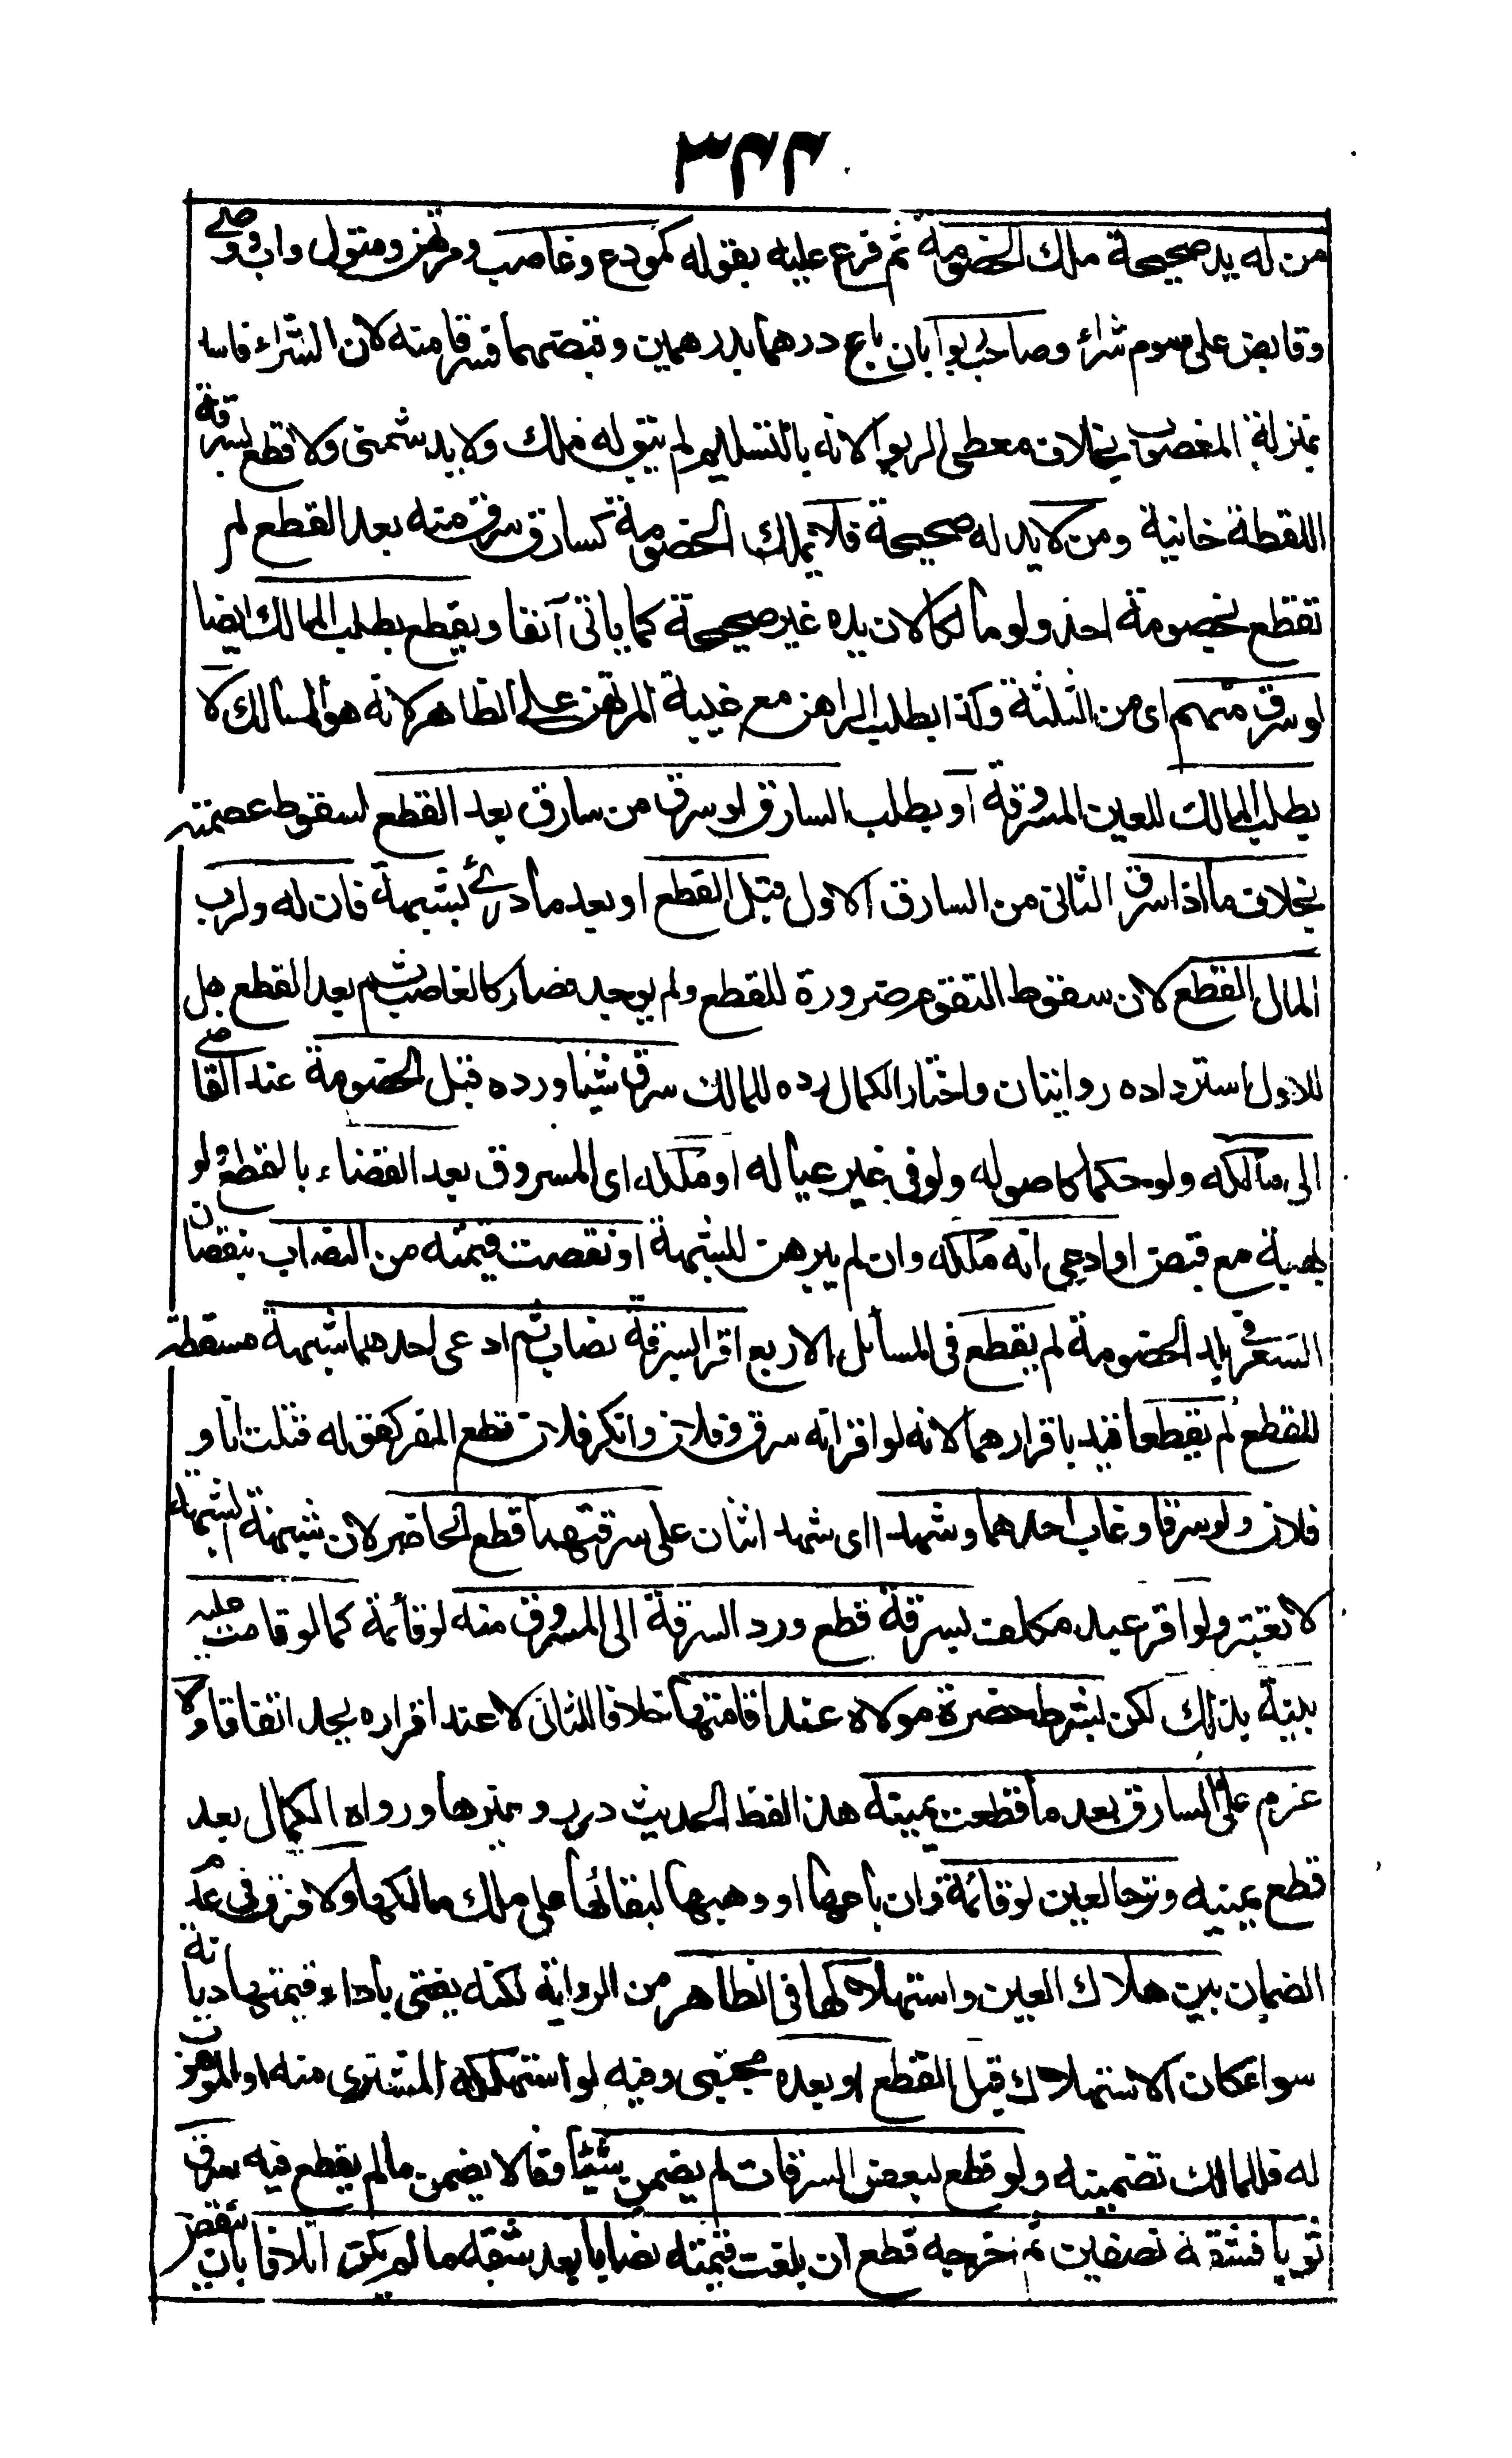 ٣٢٢
من له يد صحيحة ملك الخصومة ثم فرع عليه بقوله كمودع وغاصب ومرتهن ومتول واب ووصي
وقابض على سوم شراء وصاحب ربوا بان باع درهما بدرهمين وقبضهما فسرقا منه لان الشراء فاسدا
بمنزلة المغصوب بخلاف معطى الربوا لانه بالتسليم لم يبق له ملك ولا يد شمنى ولا قطع بسرقة
اللقطة خانية ومن لا يد له صحيحة فلا يملك الخصومة كسارق سرق منه بعد القطع لم
تقطع بخصومة احد ولو مالكا لان يده غير صحيحة كما ياتى آنفا ويقطع بطلب المالك ايضا
لو سرق منهم اى من الثلثة وكذا بطلب الراهن مع غيبة المرتهن على الظاهر لانه هو المالك لا
بطلب المالك للعين المسروقة او بطلب السارق لو سرق من سارق بعد القطع لسقوط عصمته
بخلاف ما اذا سرق الثانى من السارق الاول قبل القطع او بعد ما درئ بشبهة فان له ولرب
المال القطع لان سقوط التقوم ضرورة للقطع ولم يوجد فصار كالغاصب ثم بعد القطع هل
للاول استرداده روايتان واختار الكمال رده للمالك سرق شيئا ورده قبل الخصومة عند القاضى
الى مالكه ولو حكما كاصوله ولو فى غير عياله او ملكه اى المسروق بعد القضاء بالقطع ولو
بهبة مع قبض او ادعى انه ملكه وان لم يبرهن للشبهة او نقصت قيمته من النصاب بنقصان
السعر فى بلد الخصومة لم يقطع فى المسائل الاربع اقرا بسرقة نصاب ثم ادعى احدهما شبهة مسقطة
للقطع لم يقطعا قيد باقرارهما لانه لو اقر انه سرق وفلان وانكر فلان قطع المقر كقوله قتلت انا و
فلان ولو سرقا وغاب احدهما وشهدا اى شهد اثنان على سرقتهما قطع الحاضر لان شبهة الشبهة
لا تعتبر ولو اقر عبد مكلف بسرقة قطع ورد السرقة الى المسروق منه لو قائمة كما لو قامت عليه
بينة بذلك لكن بشرط حضرة مولاه عند اقامتها خلافا للثانى لا عند اقراره بحد اتفاقا ولا
غرم على السارق بعد ما قطعت يمينه هذا لفظ الحديث درر وغيرها ورواه الكمال بعد
قطع يمينه وترد العين لو قائمة وان باعها او وهبها لبقائها على ملك مالكها ولا فرق فى عدم
الضمان بين هلاك العين واستهلاكها فى الظاهر من الرواية لكنه يفتى باداء قيمتها ديانة
سواء كان الاستهلاك قبل القطع او بعده مجتبى وفيه لو استهلكه المشترى منه او الموهوب
له فللمالك تضمينه ولو قطع لبعض السرقات لم يضمن شيئا وقالا يضمن ما لم يقطع فيه سرق
ثوبا فشقه نصفين ثم اخرجه قطع ان بلغت قيمته نصابا بعد شقه ما لم يكن اتلافا بان ينقص